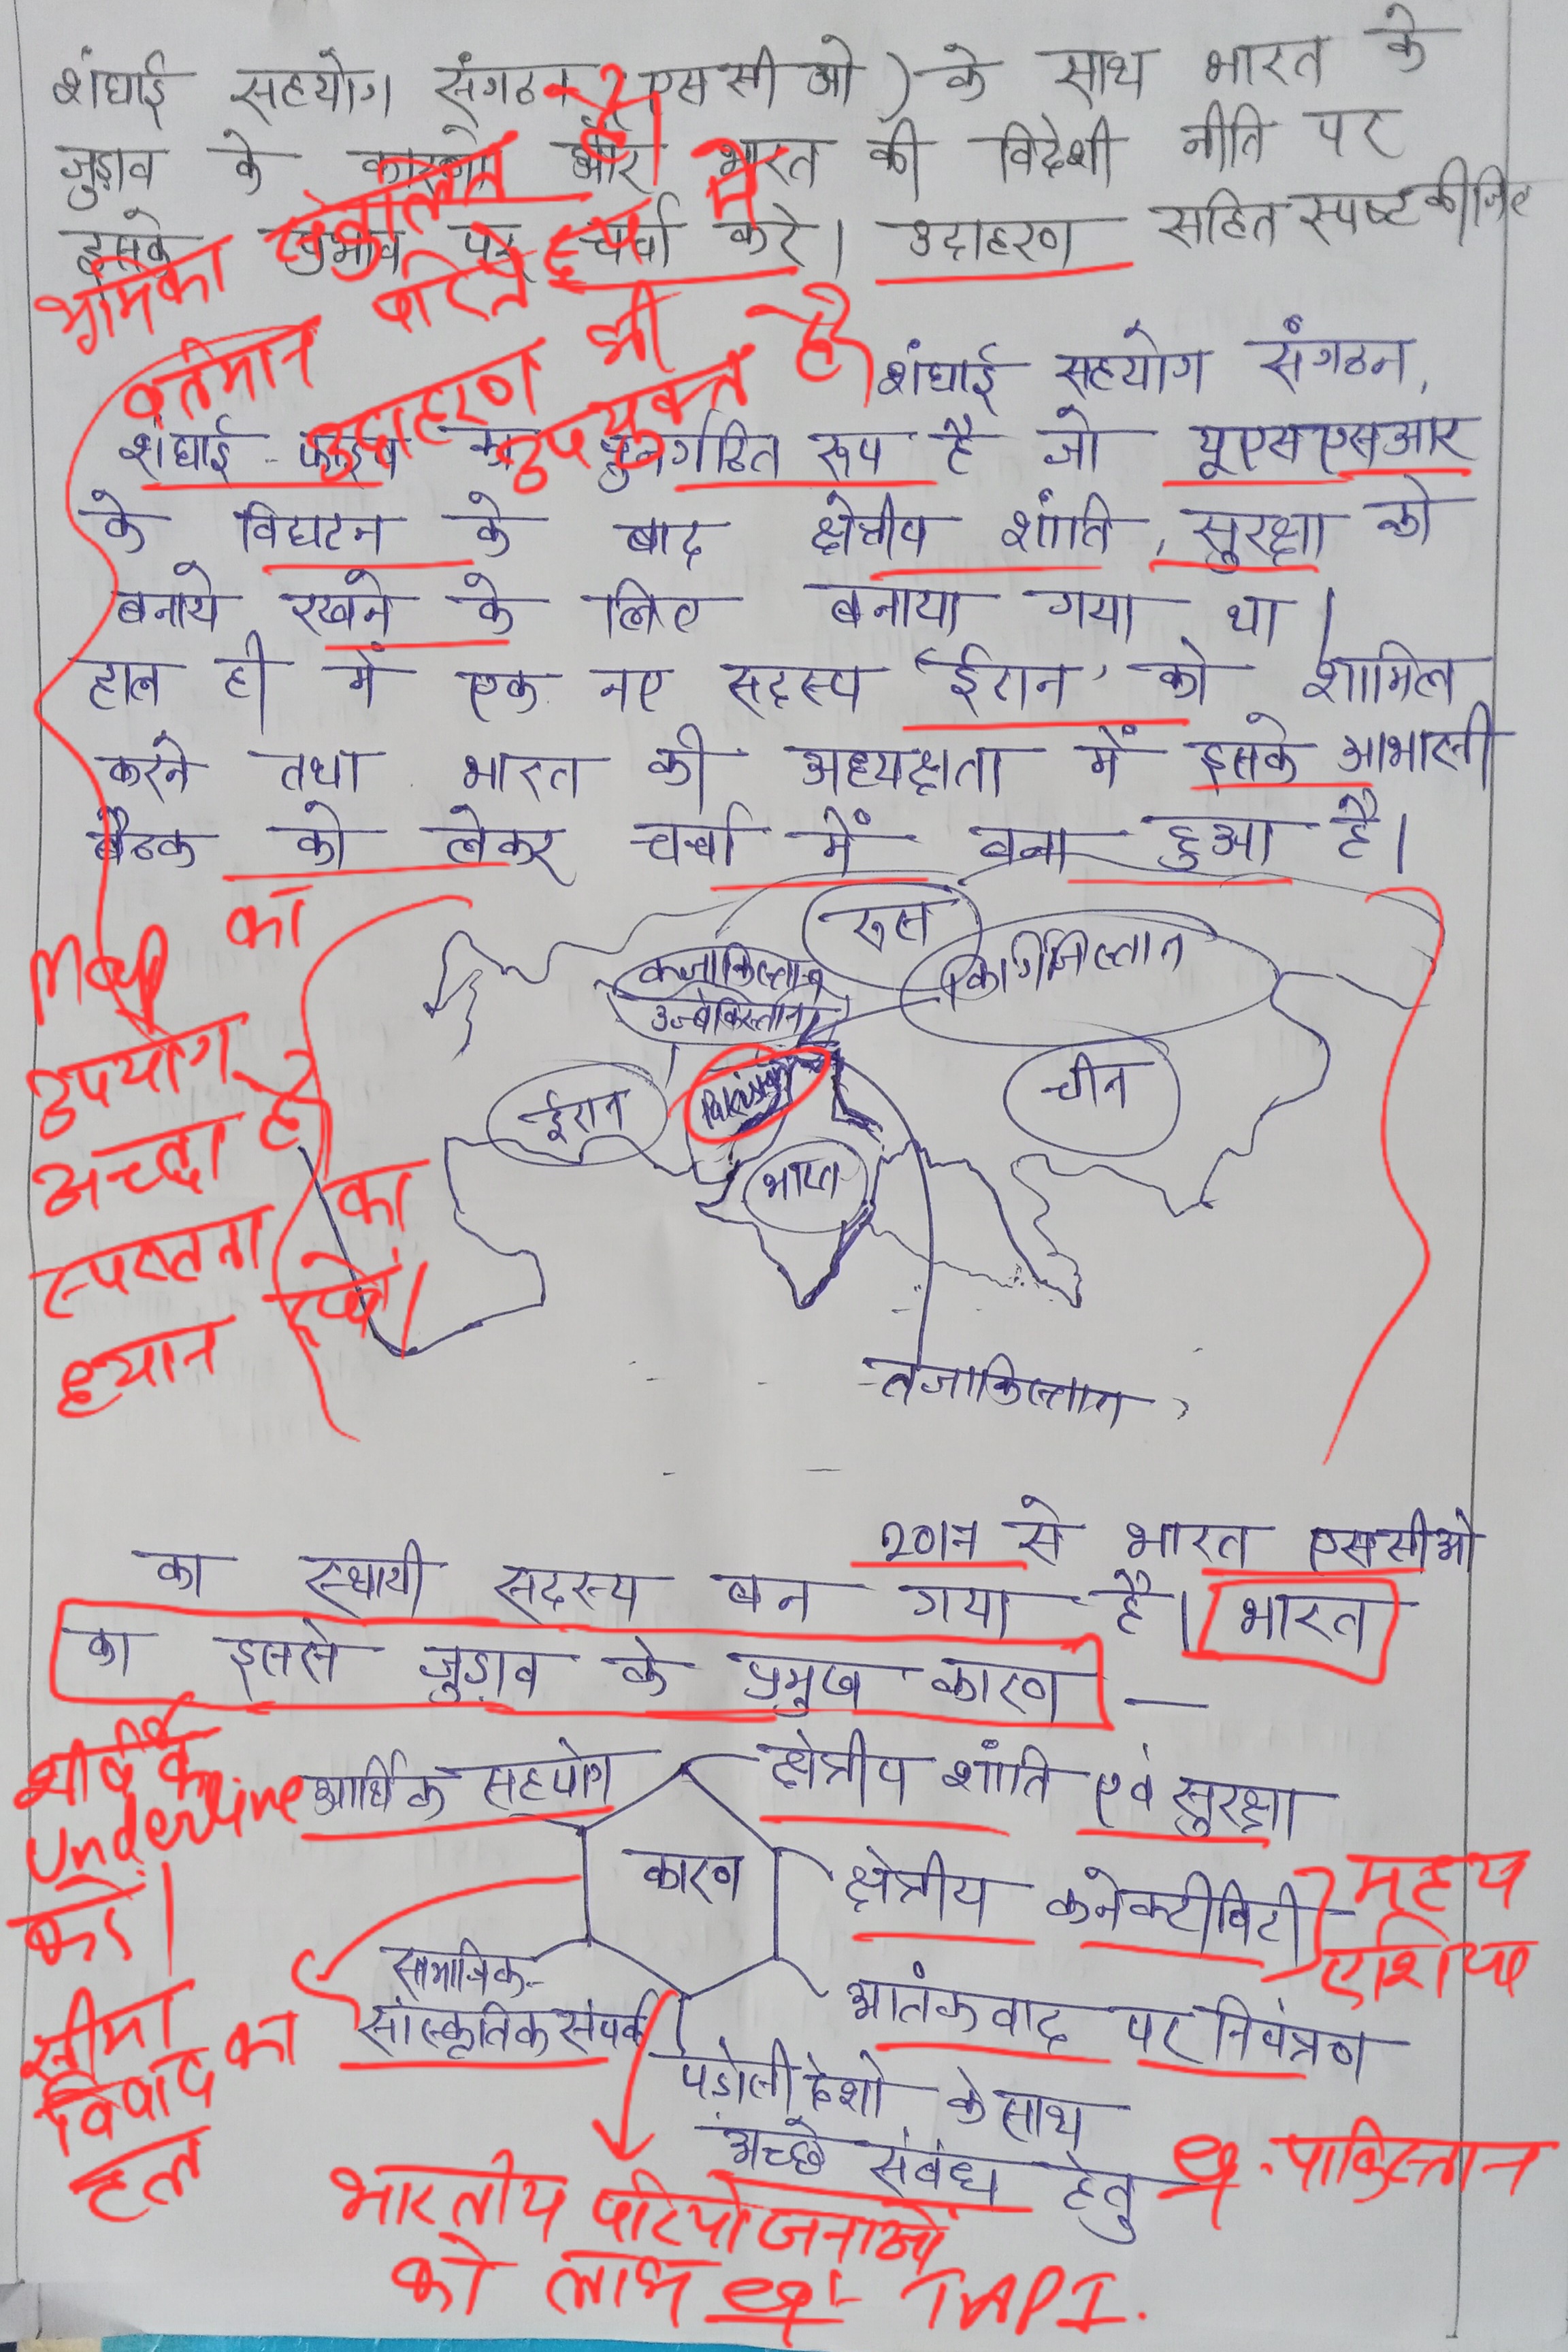 शंघाई सहयोग संगठन (एससीओ) के साथ भारत के
जुड़ाव के कारणों और भारत की विदेशी नीति पर
इसके प्रभाव पर चर्चा करे। उदाहरण सहित स्पष्ट कीजिए
भूमिका संकलित है।
वर्तमान परिप्रेक्ष्य में
उदाहरण भी
उपयुक्त है।
शंघाई सहयोग संगठन,
शंघाई-फाइव का पुनर्गठित रूप है जो यूएसएसआर
के विघटन के बाद क्षेत्रीय शांति, सुरक्षा को
बनाये रखने के लिए बनाया गया था।
हाल ही में एक नए सदस्य 'ईरान' को शामिल
करने तथा भारत की अध्यक्षता में इसके आभासी
बैठक को लेकर चर्चा में बना हुआ है।
Map का
उपयोग
अच्छा है
स्पष्टता का
ध्यान रखें।
रूस
कजाकिस्तान
उज्बेकिस्तान
किर्गिजिस्तान
ईरान
Pakistan
चीन
भारत
तजाकिस्तान
2017 से भारत एससीओ
का स्थायी सदस्य बन गया है। भारत
का इससे जुड़ाव के प्रमुख कारण —
शीर्षक
underline
करें।
आर्थिक सहयोग
क्षेत्रीय शांति एवं सुरक्षा
कारण
क्षेत्रीय कनेक्टीविटी
मध्य
एशिया
सामाजिक-
सांस्कृतिक संपर्क
आतंकवाद पर नियंत्रण
सीमा
विवाद का
हल
पड़ोसी देशो के साथ
अच्छे संबंध हेतु
eg.-पाकिस्तान
भारतीय परियोजनाओं
को लाभ eg:- TAPI.